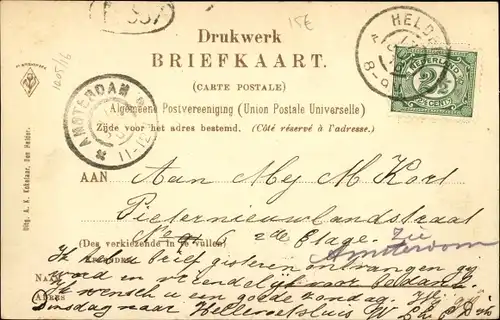 15E
1005/16
Drukwerk
BRIEFKAART.
(CARTE POSTALE)
Algemeene Postvereeniging (Union Postale Universelle)
Zijde voor het adres bestemd. (Côté réservé à l'adresse.)
HELDE
NEDERLAND
2½
CENT
AMSTERDAM
11-12
Uitg. A. K. Kokelaar, Den Helder.
AAN Aan Mej M Kort
Pieternieuwlandstraat
No 6 2de Etage.
Amsterdam
(Des verkiezende in te vullen)
Ik heb u brief gisteren ontvangen
en vriendelijk voor
Ik wensch u een goede zondag.
ADRES
Dinsdag naar Hellevoetsluis